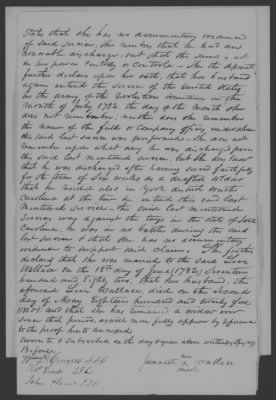 State that she has no documentary evidence
of said service, she remembers that he had an
honorable discharge, but that the same is not
in her power custody or controle — She the deponent
further declares upon her oath, that her husband
again entered the service of the United States
in the army of the Revolution sometime in the
month of July 1782 the day of the month she
does not remember, neither does she remember
the names of the field or Company officers under whom
the said last service was performed — She does not
remember upon what day he was discharged from
this said last mentioned service, but she does know
that he was discharged after having served faithfully
for the term of Six weeks as a drafted soldier
that he resided also in York district South
Carolina at the time he entered this said last
mentioned service — the said last mentioned
service was against the tories in the State of South
Carolina, he was in no battle during the said
last service & that she has no documentary
evidence to support said claim, She further
declares that she was married to the said
Wallace on the 18th day of June (1782) Seventeen
hundred and Eighty two, that her husband, the
aforesaid Wallace, died on the Second
day of May Eighteen hundred and twenty
and that she has remained a widow ever
since that period, as will more fully appear by reference
to the proof hereto annexed
Sworn to & Subscribed on the day & year above written
Before
Wallace
mark
John